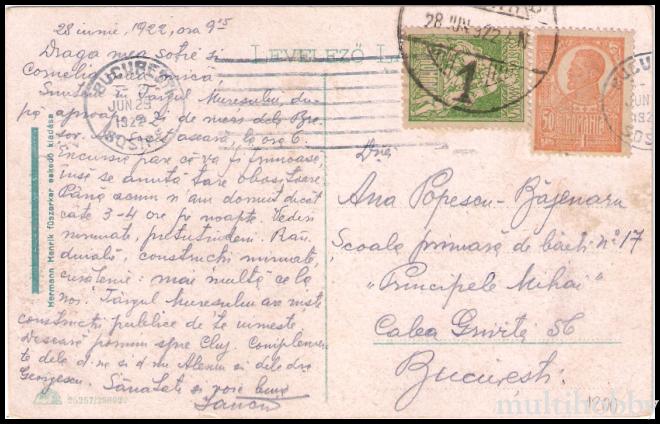 28 iunie, 1922, ora 9 15
Draga mea soție și
Cornelia
Sunt în Târgul Mureșului, du-
pă aproape 24 de mers dela Bra-
șov. Am sosit aseară, la ora 6.
Excursia pare că va fi frumoasă,
însă se anunță tare obositoare
Până acum n'am dormit decât
câte 3-4 ore pe noapte. Vederi
minunate, pretutindeni. Rân-
duială, construcții minunate,
curățenie: mai multă ca la
noi. Târgul Mureșului are niște
construcții publice de te uimește
Deseară pornim spre Cluj. Complemen-
te dela d-ne și d-nu Alexiu și dela d-ra
Georgescu. Sănătate și voie bună
Iancu
LEVELEZŐ LA
BUCUREȘTI
JUN 29
1922
SOSIRE
28 JUN. 922
1
50
50
ROMANIA
JUN
192
SOSIR
D-nei
Ana Popescu-Băjenaru
Școala primară de băeți No 17
"Principele Mihai"
Calea Griviței 56
București.
Hermann Henrik fűszerker. eskedő kiadása
1201
multihobby